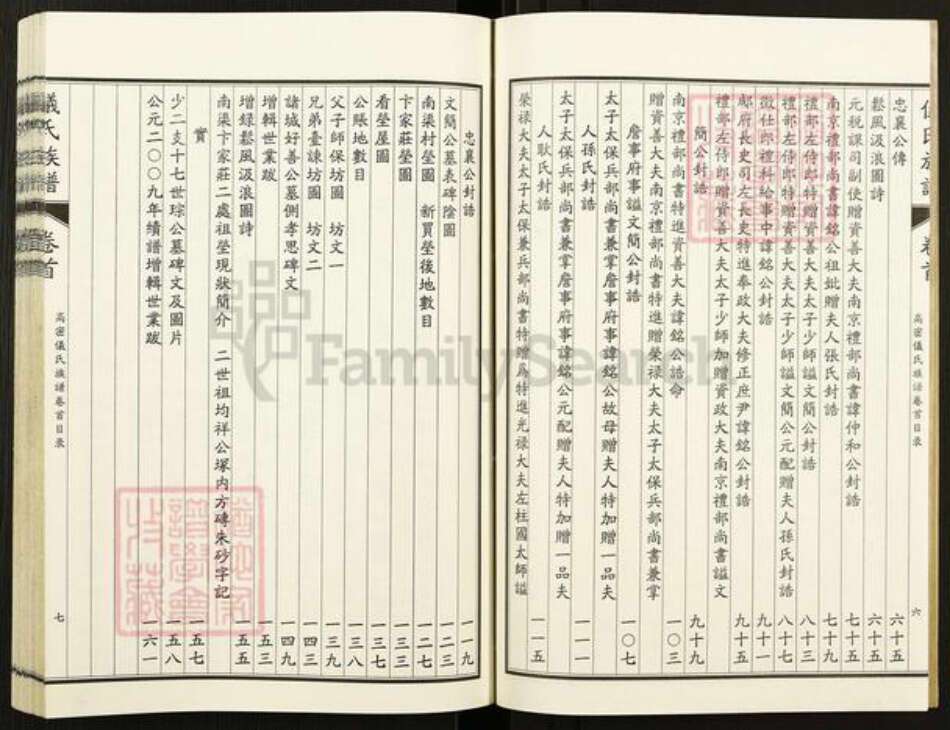 儀氏族譜 卷首
高密儀氏族譜卷首目錄
六
忠襄公傳 六十五
鬆風汲浪圖詩 六十五
元稅課司副使贈資善大夫南京禮部尚書諱仲和公封誥 七十五
南京禮部尚書諱銘公祖妣贈夫人張氏封誥 七十九
禮部左侍郎特贈資善大夫太子少師謚文簡公封誥 八十三
禮部左侍郎特贈資善大夫太子少師謚文簡公元配贈夫人孫氏封誥 八十七
徵仕郎禮科給事中諱銘公封誥 九十一
郕府長史司左長史特進奉政大夫修正庶尹諱銘公封誥 九十五
禮部左侍郎贈資善大夫太子少師加贈資政大夫南京禮部尚書謚文
簡公封誥 九十九
南京禮部尚書特進資善大夫諱銘公誥命 一〇三
贈資善大夫南京禮部尚書特進贈榮祿大夫太子太保兵部尚書兼掌
詹事府事謚文簡公封誥 一〇七
太子太保兵部尚書兼掌詹事府事諱銘公故母贈夫人特加贈一品夫
人孫氏封誥 一一一
太子太保兵部尚書兼掌詹事府事諱銘公元配贈夫人特加贈一品夫
人耿氏封誥 一一五
榮祿大夫太子太保兼兵部尚書特贈爲特進光祿大夫左柱國太師謚
忠襄公封誥 一一九
文簡公墓表碑陰圖 一二三
南渠村塋圖 新買塋後地數目 一二七
卞家莊塋圖 一三三
看塋屋圖 一三七
公賬地數目 一三八
父子師保坊圖 坊文一 一三九
兄弟臺諫坊圖 坊文二 一四三
諸城好善公墓側孝思碑文 一四九
增輯世業跋 一五三
增錄鬆風汲浪圖詩 一五五
南渠卞家莊二處祖塋現狀簡介 二世祖均祥公塚內方磚朱砂字記
實 一五七
少二支十七世琮公墓碑文及圖片 一五八
公元二〇〇九年續譜增輯世業跋 一六一
儀氏族譜 卷首
高密儀氏族譜卷首目錄
七
FamilySearch